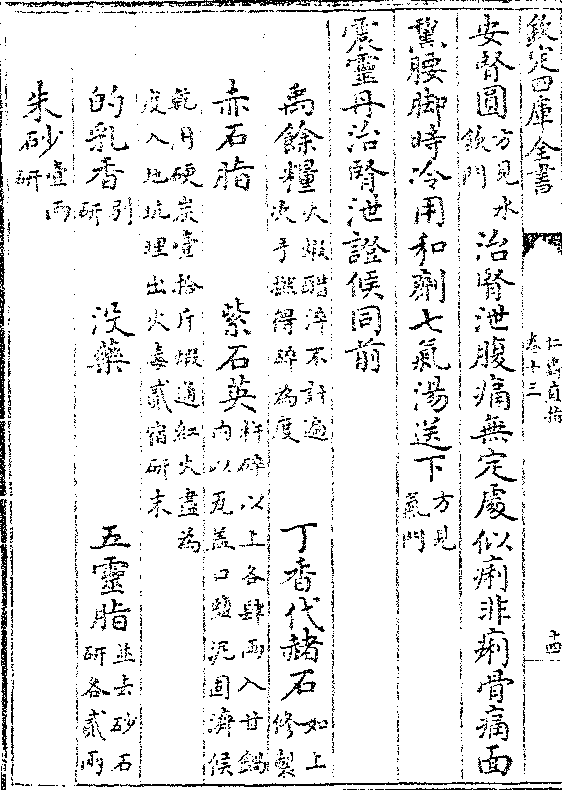 欽定四庫全書
仁齋直指
卷十三
十四
安腎圓方見水飲門治腎泄腹痛無定處似痢非痢骨痛面
黧腰脚時冷用和劑七氣湯送下方見氣門
震靈丹治腎泄證候同前
禹餘糧火煅醋淬不計遍次手撚得碎為度 丁香代赭石如上修製
赤石脂 紫石英杵碎以上各肆兩入甘鍋内以瓦蓋口鹽泥固濟候
乾用硬炭壹拾斤煅通紅火盡為度入地坑埋出火毒貳宿研末
的乳香引研 没藥 五靈脂並去砂石研各貳兩
朱砂壹兩研